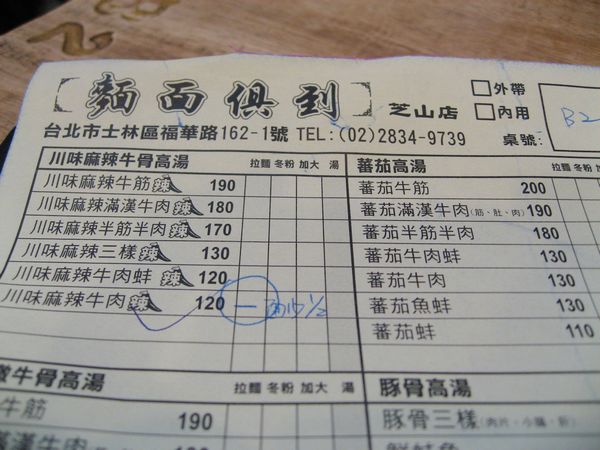 麵面俱到 芝山店
□外帶
□內用
桌號:
B2
台北市士林區福華路162-1號 TEL:(02)2834-9739
川味麻辣牛骨高湯 拉麵 冬粉 加大 湯
川味麻辣牛筋 辣 190
川味麻辣滿漢牛肉 辣 180
川味麻辣半筋半肉 辣 170
川味麻辣三樣 辣 130
川味麻辣牛肉蚌 辣 120
川味麻辣牛肉 辣 120 一 1/2
蕃茄高湯 拉麵 冬粉 加
蕃茄牛筋 200
蕃茄滿漢牛肉(筋、肚、肉) 190
蕃茄半筋半肉 180
蕃茄牛肉蚌 130
蕃茄牛肉 130
蕃茄魚蚌 130
蕃茄蚌 110
牛骨高湯 拉麵 冬粉 加大 湯
牛筋 190
滿漢牛肉
豚骨高湯
豚骨三樣